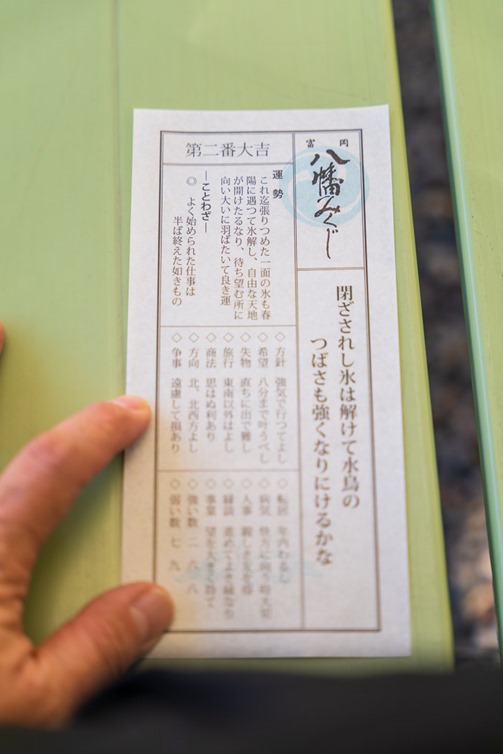 富岡
八幡みくじ
閉ざされし氷は解けて水鳥の
つばさも強くなりにけるかな
第二番大吉
運勢
これ迄張りつめた一面の氷も春
陽に遇つて氷解し、自由な天地
が開けたるなり、待ち望む所に
向い大いに羽ばたいて良き運
―ことわざ―
◎よく始められた仕事は
半ば終えた如きもの
◇方針 強気で行つてよし
◇希望 八分まで叶うべし
◇失物 直ちに出で難し
◇旅行 東南以外はよし
◇商法 思はぬ利あり
◇方向 北、北西方よし
◇争事 遠慮して損あり
◇転居 年内わるし
◇病気
◇人事 親しき友を得
◇縁談 進めてよき縁なり
◇事業 望を大きく持て
◇強い数 二 六 八
◇弱い数 七 九